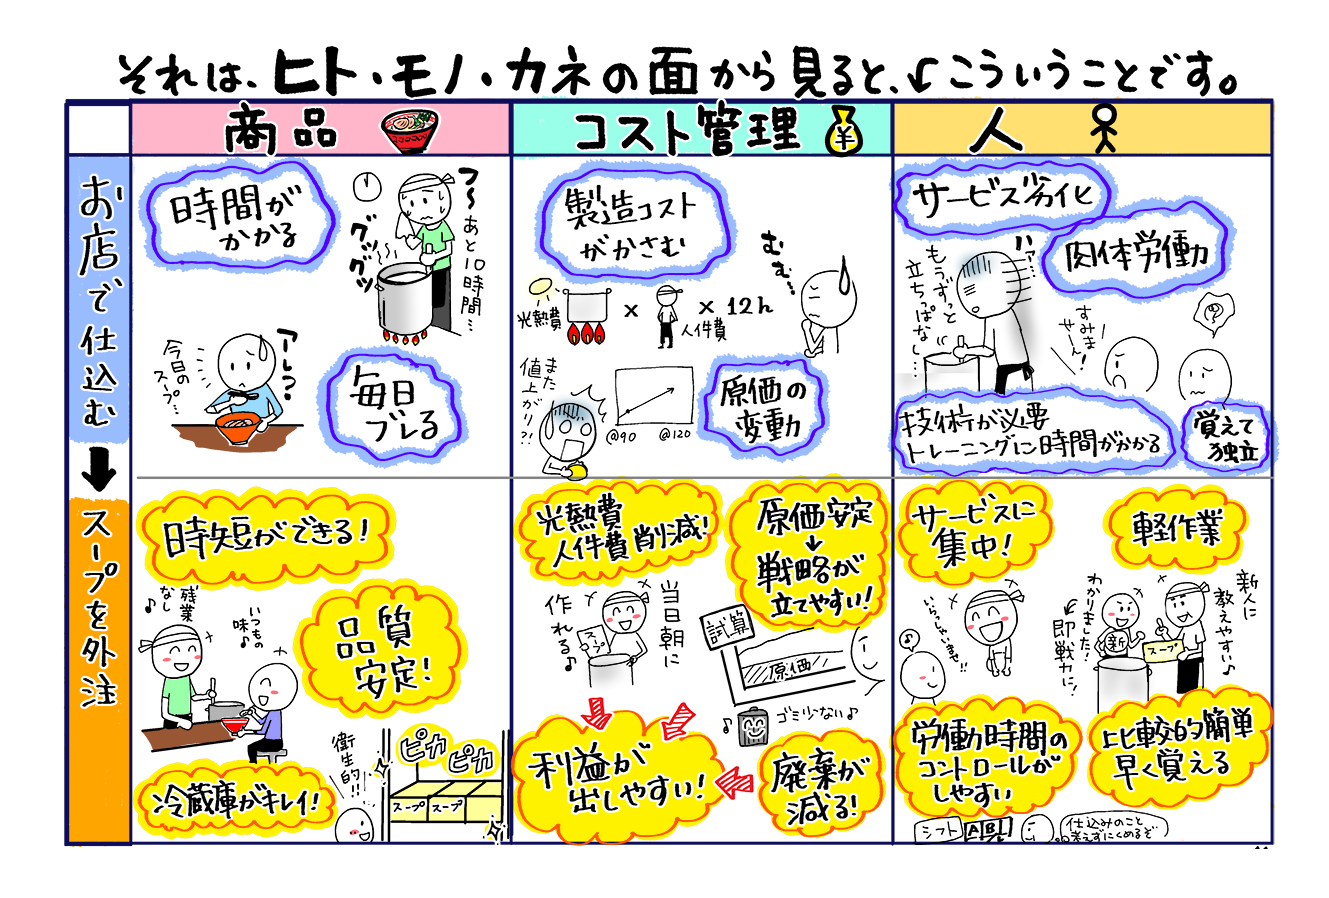 それは、ヒト・モノ・カネの面から見ると、↓こういうことです。
商品
コスト管理
¥
人
お店で仕込む
時間が
かかる
フ〜
あと10時間…
グッグッ
アレっ?
今日の
スープ…
毎日
ブレる
製造コスト
がかさむ
むむ…
光熱費
×
人件費
× 12h
また
値上がり?!
@90
@120
原価の
変動
サービス劣化
肉体労働
ハァ…
もうずっと
立ちっぱなし…
すみま
せーん!
技術が必要
トレーニングに時間がかかる
覚えて
独立
スープを外注
時短ができる!
残業
なし♪
いつもの
味♪
品質
安定!
衛生的!
ピカ
ピカ
スープ
スープ
冷蔵庫がキレイ!
光熱費
人件費削減!
原価安定
↓
戦略が
立てやすい!
当日朝に
作れる♪
スープ
試算
原価
♪ゴミ少ない♪
利益が
出しやすい!
廃棄が
減る!
サービスに
集中!
軽作業
いらっしゃいませ!!
♪
新人に
教えやすい♪
わかりました!
即戦力に!
新
スープ
労働時間の
コントロールが
しやすい
比較的簡単
早く覚える
シフト
A
B
仕込みのこと
考えずにくめるぞ